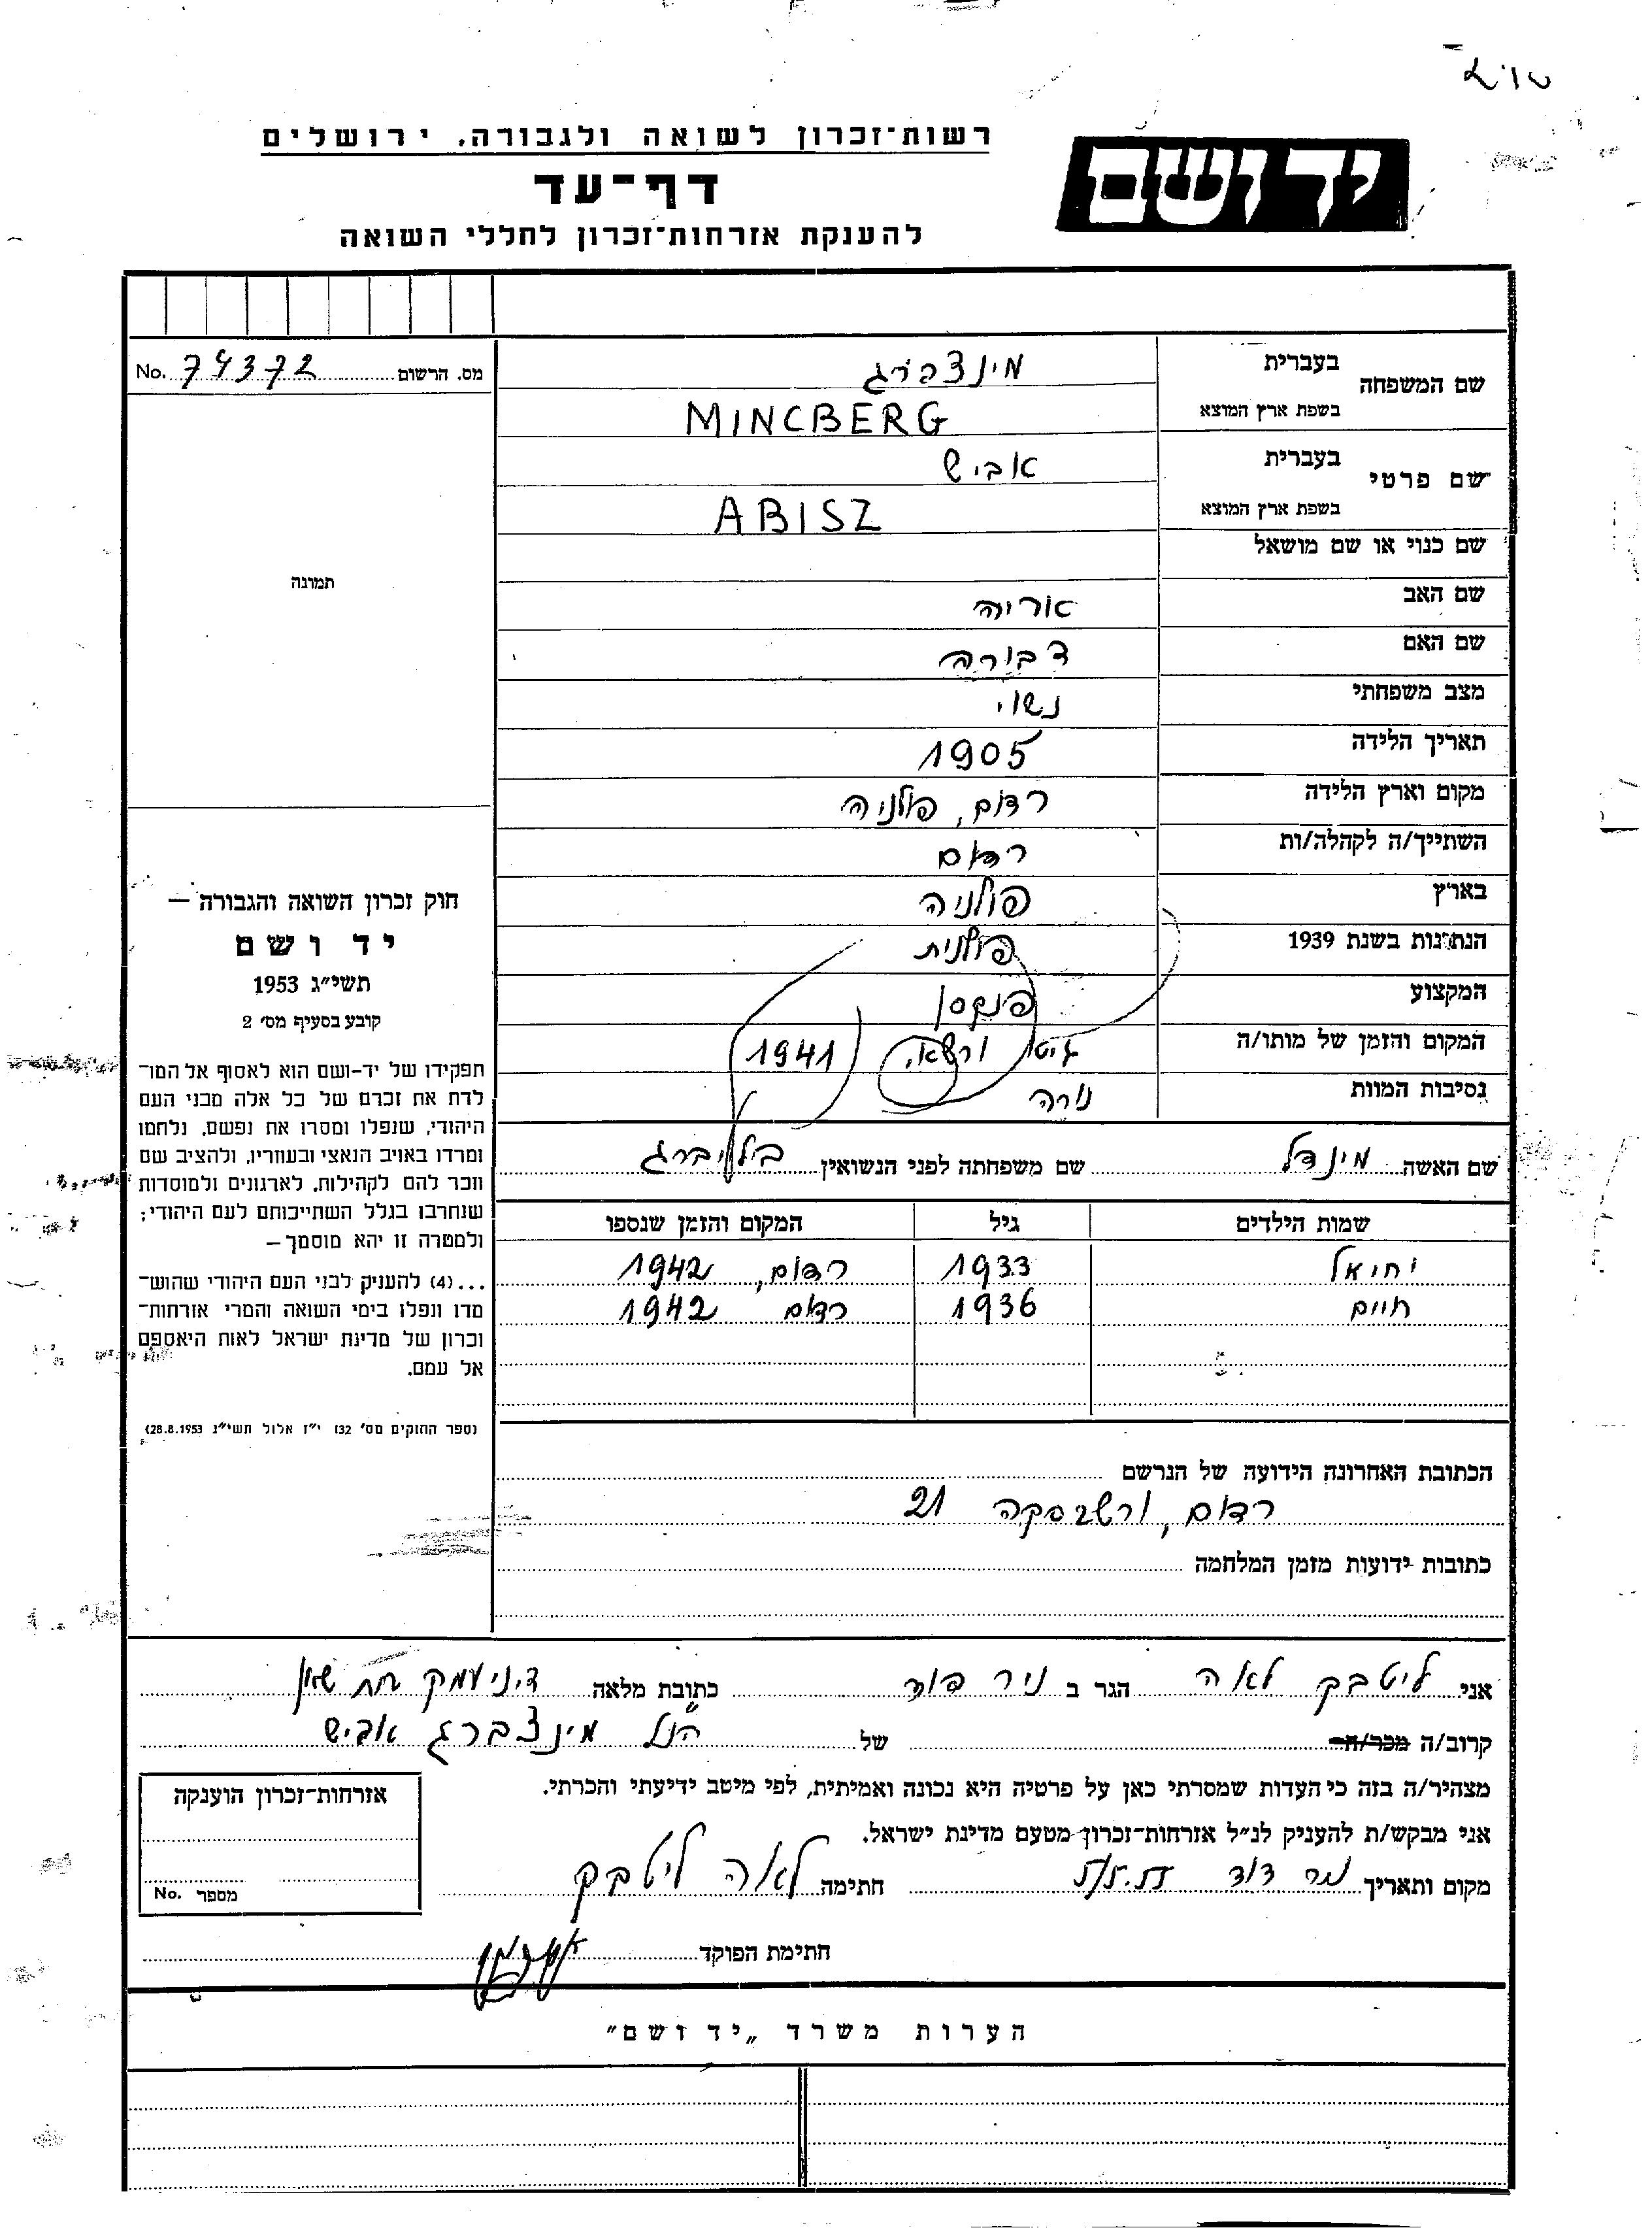 רשות־זכרון לשואה ולגבורה, ירושלים
יד ושם
דף־עד
להענקת אזרחות־זכרון לחללי השואה
מס. הרשום 74372 No.
שם המשפחה
בעברית מינצברג
בשפת ארץ המוצא MINCBERG
שם פרטי
בעברית אביש
בשפת ארץ המוצא ABISZ
שם כנוי או שם מושאל
שם האב אריה
שם האם דבורה
מצב משפחתי נשוי
תאריך הלידה 1905
מקום וארץ הלידה רדום, פולניה
השתייך/ה לקהלה/ות ראדום
בארץ פולניה
הנתינות בשנת 1939 פולנית
המקצוע
המקום והזמן של מותו/ה גיטו ורשא, 1941
נסיבות המוות נורה
תמונה
חוק זכרון השואה והגבורה —
יד ושם
תשי״ג 1953
קובע בסעיף מס׳ 2
תפקידו של יד-ושם הוא לאסוף אל המו־
לדת את זכרם של כל אלה מבני העם
היהודי, שנפלו ומסרו את נפשם, נלחמו
ומרדו באויב הנאצי ובעוזריו, ולהציב שם
וזכר להם לקהילות, לארגונים ולמוסדות
שנחרבו בגלל השתייכותם לעם היהודי;
ולמטרה זו יהא מוסמך —
...(4) להעניק לבני העם היהודי שהוש־
מדו ונפלו בימי השואה והמרי אזרחות־
זכרון של מדינת ישראל לאות היאספם
אל עמם.
(ספר החוקים מס׳ 132 י״ז אלול תשי״ג 28.8.1953)
שם האשה מינדל שם משפחתה לפני הנשואין
שמות הילדים גיל המקום והזמן שנספו
יחיאל 1933 רדום, 1942
חיים 1936 רדום 1942
הכתובת האחרונה הידועה של הנרשם
רדום, ורשבסקה 21
כתובות ידועות מזמן המלחמה
אני ליטבק לאה הגר ב ניר דוד כתובת מלאה ד.נ. עמק בית שאן
קרוב/ה מכר/ה של הנ״ל מינצברג אביש
מצהיר/ה בזה כי העדות שמסרתי כאן על פרטיה היא נכונה ואמיתית, לפי מיטב ידיעתי והכרתי.
אני מבקש/ת להעניק לנ״ל אזרחות־זכרון מטעם מדינת ישראל.
מקום ותאריך ניר דוד חתימה לאה ליטבק
חתימת הפוקד
אזרחות־זכרון הוענקה
מספר No.
הערות משרד „יד ושם״